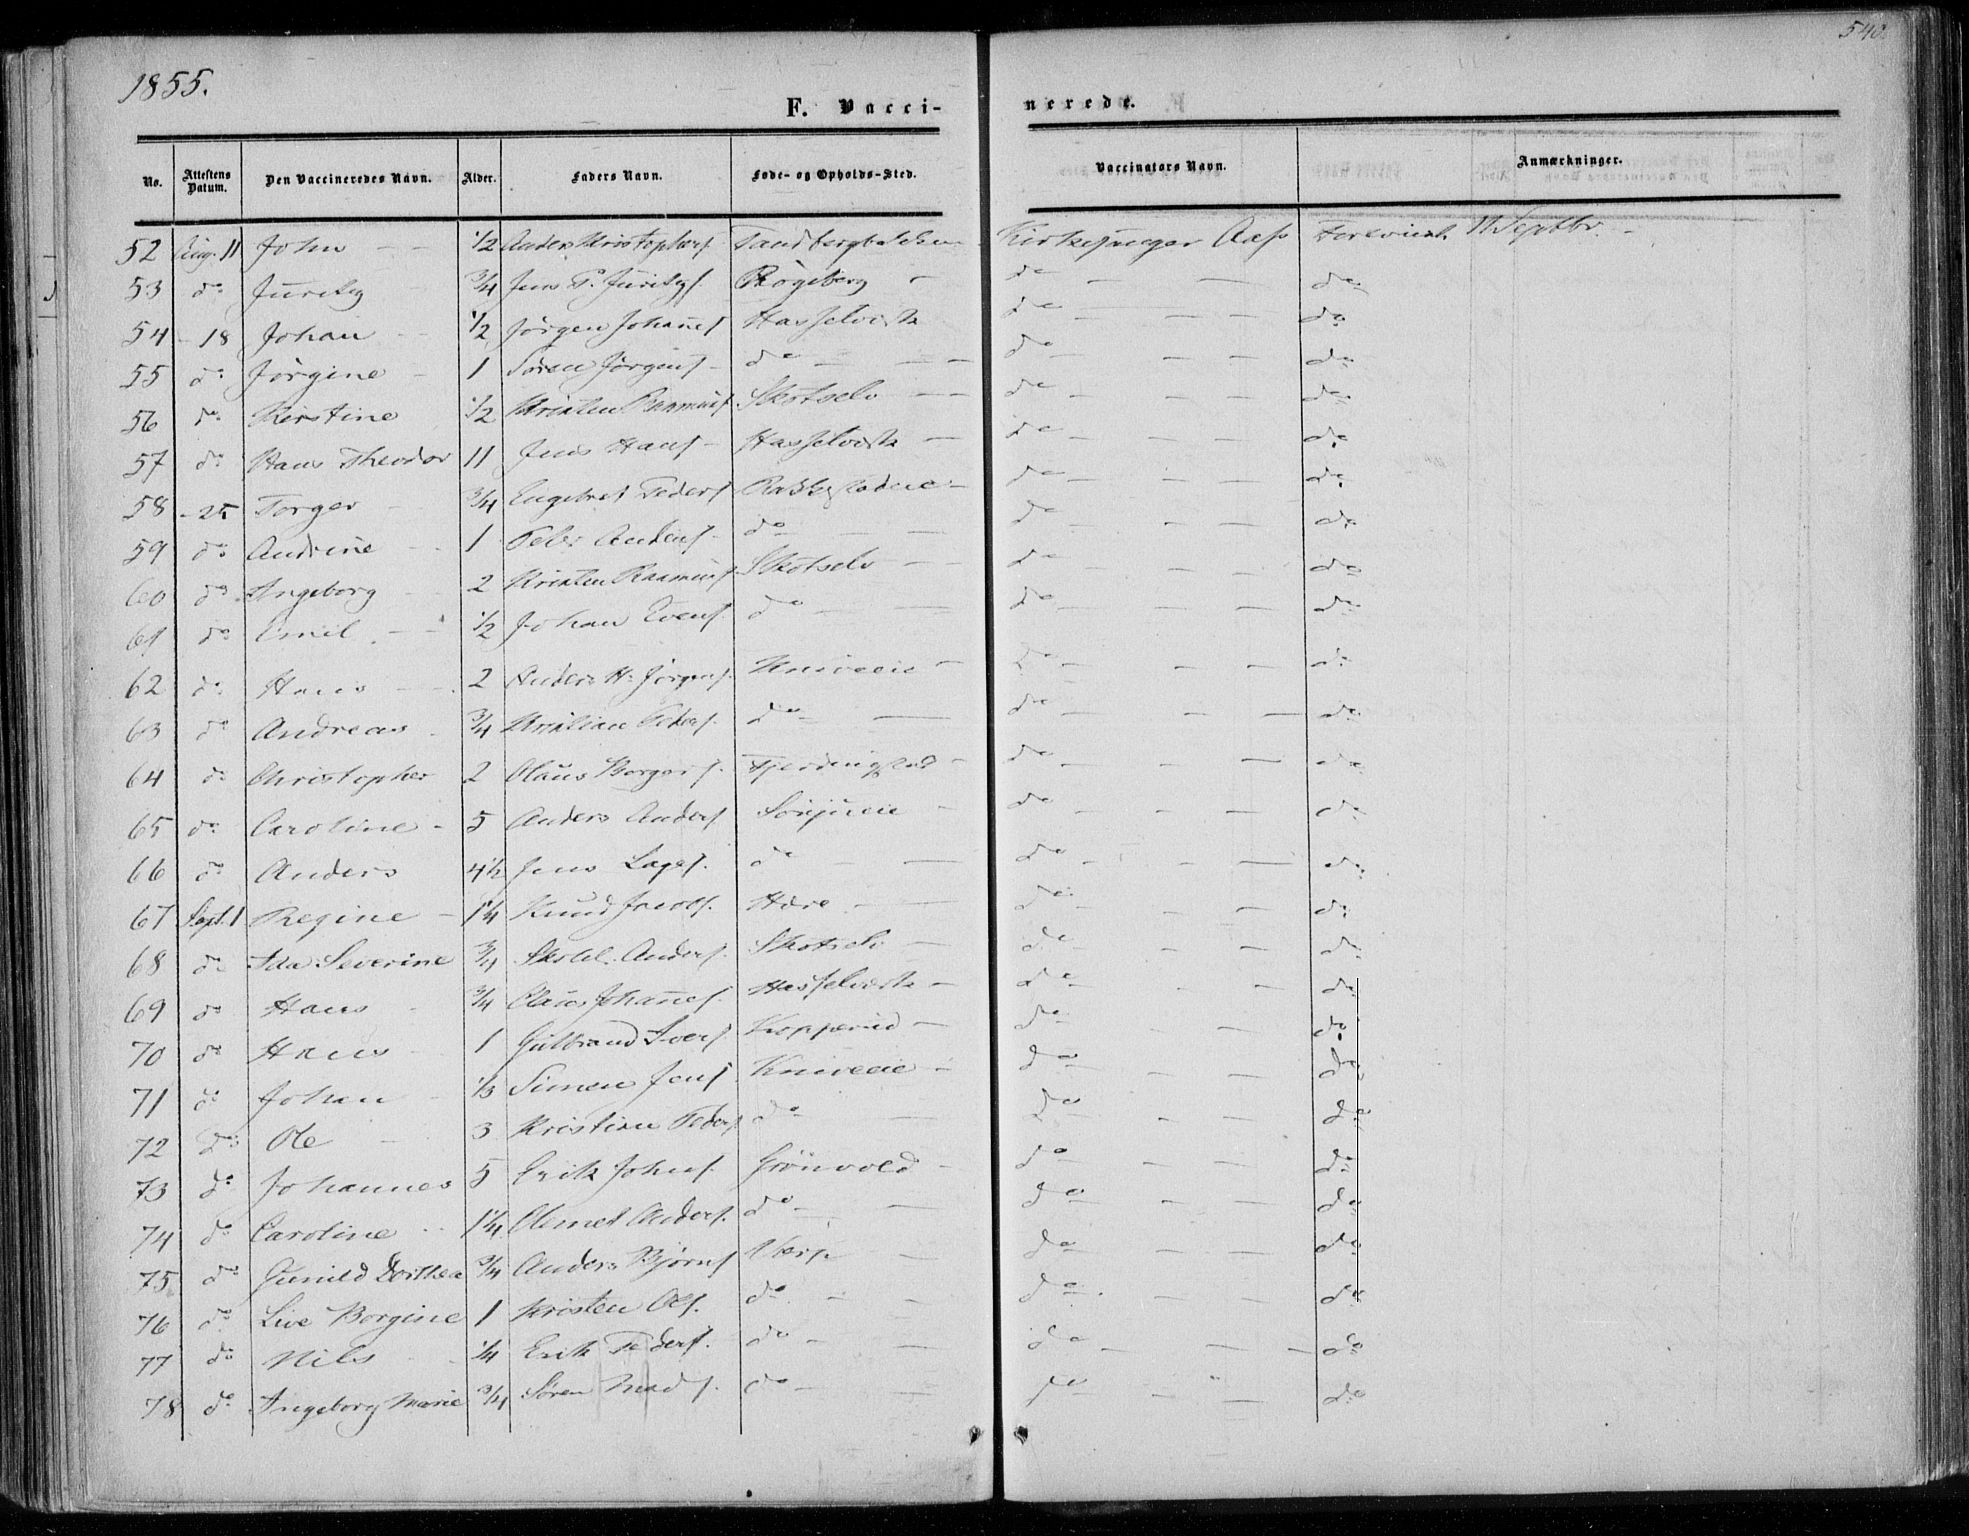 540
1855.
F. Vacci- nerede.
No. Attestens Datum. Den Vaccineredes Navn. Alder. Faders Navn. Føde- og Opholds-Sted. Vaccinators Navn. Anmærkninger.
52 Aug. 11 John 1/2 Anders Kristophers. Kirkesanger Aas Forevist 11 Septbr.
53 do 3/4 Jens P. Røgeberg do do
54 - 18 Johan 1/2 Jörgen Johans Hasselvest do do
55 do Jörgine 1 Sören Jörgens do do do
56 do Kerstine 1/2 Kristen Rasmus Skotselv do do
57 do Hans Theodor 11 Jens Hans Hasselvest do do
58 - 25 Torger 3/4 Engebret Peders do do
59 do Andrine 1 Peder Anders do do do
60 do Ingeborg 2 Kristen Rasmus Skotselv do do
61 do Emil 1/2 Johan Evens. do do do
62 do Hans 2 Anders H. Jörgens. Kniveeie do do
63 do Andreas 3/4 Kristian Peders. do do do
64 do Christopher 2 Olaus Borgers. Fjerdingstad do do
65 do Caroline 5 Anders Anders do do
66 do Anders 4 1/2 Jens Lages. do do do
67 Sept. 1 Regine 1 1/4 Knud Jacobs. Hære do do
68 do Ida Severine 3/4 Anders. Skotselv do do
69 do Hans 3/4 Olaus Johannes. Hasselvest do do
70 do Hans 1 Gulbrand Ivers Kopperud do do
71 do Johan 1/3 Simen Jens Kniveeie do do
72 do Ole 3 Kristian Peders do do do
73 do Johannes 5 Erik Johns. Grönvold do do
74 do Caroline 1 1/4 Clemet Anders. do do do
75 do Gunild Dorthea 3/4 Anders Björns Verp do do
76 do Live Borgine 1 Kristen Ols. do do do
77 do Nils 1/4 Erik Peders. do do do
78 do Ingeborg Marie 3/4 Sören Mads. do do do